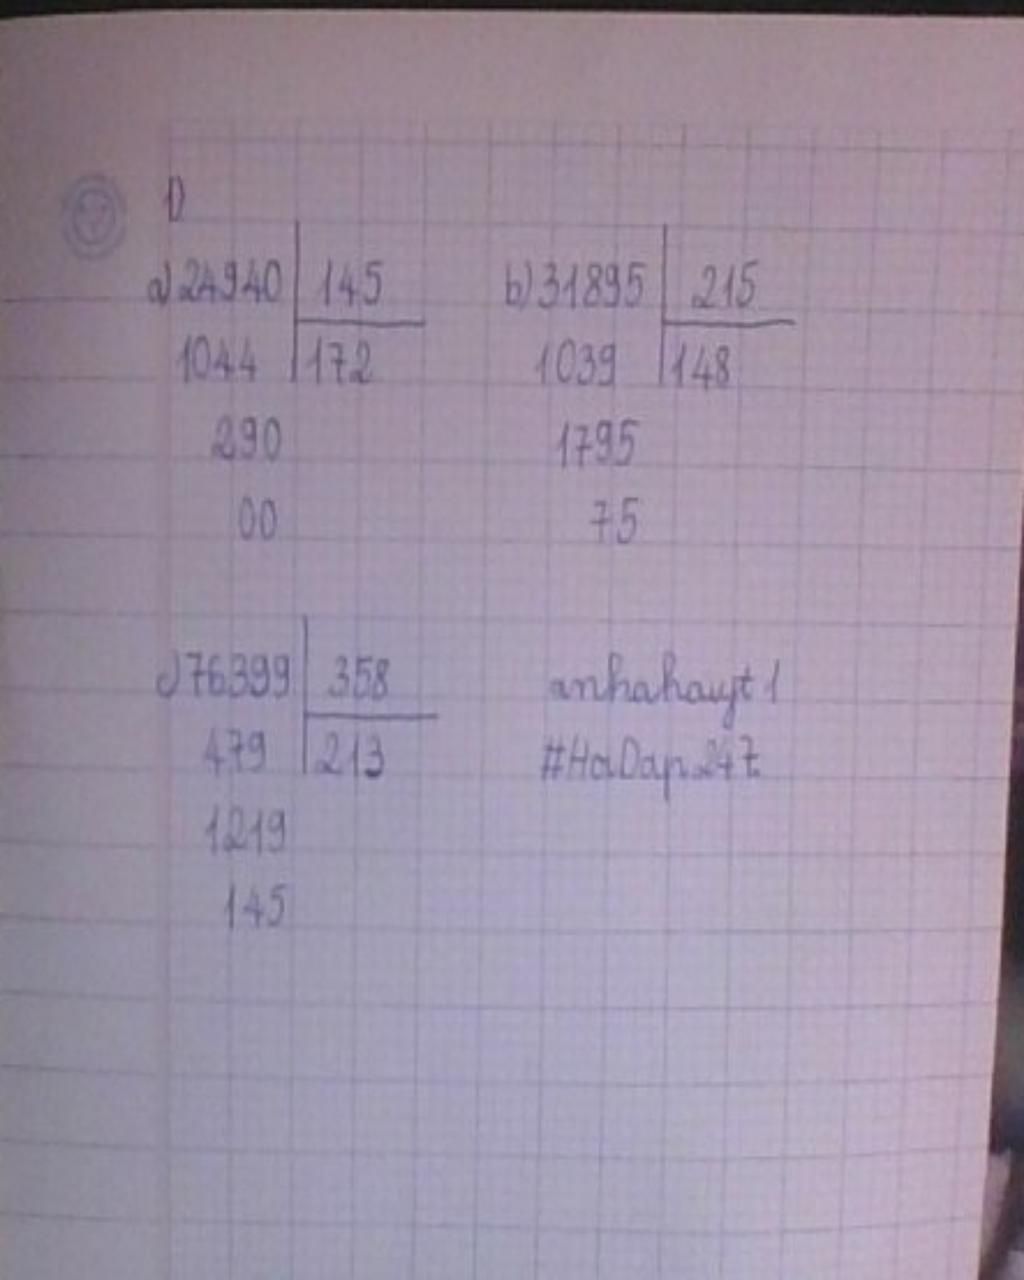 1)
a) 24940 145
1044 172
290
00
b) 31895 215
1039 148
1795
75
c) 76399 358
479 213
1219
145
anhahayt1
#HoiDap247